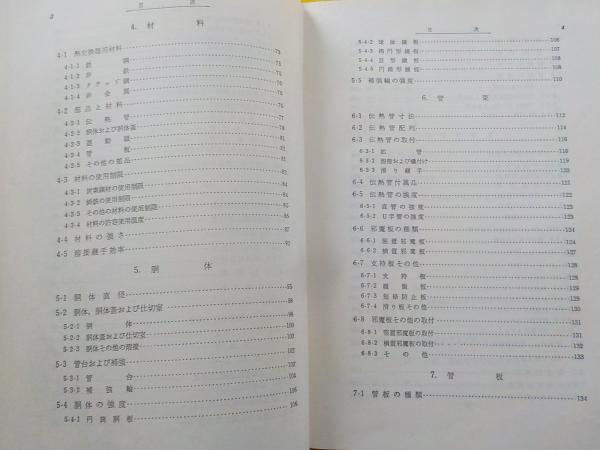 2
目 次
4. 材 料
4-1 熱交換器用材料 73
4-1-1 鉄 鋼
4-1-2 非 鉄
4-1-3 クラッド鋼
4-1-4 非 金 属 76
4-2 部品と材料 76
4-2-1 伝 熱 管 77
4-2-2 胴体および胴体蓋
4-2-3 遊 動 頭
4-2-4 管 板
4-2-5 その他の部品
4-3 材料の使用制限
4-3-1 炭素鋼材の使用制限 84
4-3-2 鋳鉄の使用制限
4-3-3 その他の材料の使用制限
4-3-4 材料の許容使用温度 87
4-4 材料の強さ
4-5 溶接継手効率 92
5. 胴 体
5-1 胴体直径 95
5-2 胴体, 胴体蓋および仕切室 98
5-2-1 胴 体 100
5-2-2 胴体蓋および仕切室 101
5-2-3 胴体その他の溶接 102
5-3 管台および補強 102
5-3-1 管 台 104
5-3-2 補 強 輪 106
5-4 胴体の強度
5-4-1 円筒胴板 106
目 次
4
5-4-2 球体鏡板 106
5-4-3 楕円形鏡板 108
5-4-4 皿形鏡板
5-4-5 円錐形鏡板
5-5 補強輪の強度 110
6. 管 束
6-1 伝熱管寸法 112
6-2 伝熱管配列 114
6-3 伝熱管の取付 116
6-3-1 拡 管 116
6-3-2 溶接および鑞付け 119
6-3-3 滑り継手 120
6-4 伝熱管付属品 121
6-5 伝熱管の強度 122
6-5-1 直管の強度 123
6-5-2 U字管の強度 123
6-6 邪魔板の種類 124
6-6-1 竪置邪魔板
6-6-2 横置邪魔板
6-7 支持板その他 128
6-7-1 支 持 板 128
6-7-2 緩衝板 129
6-7-3 短絡防止板 129
6-7-4 滑り板その他 130
6-8 邪魔板その他の取付 131
6-8-1 竪置邪魔板の取付 131
6-8-2 横置邪魔板の取付 132
6-8-3 その他 133
7. 管 板
7-1 管板の種類 134